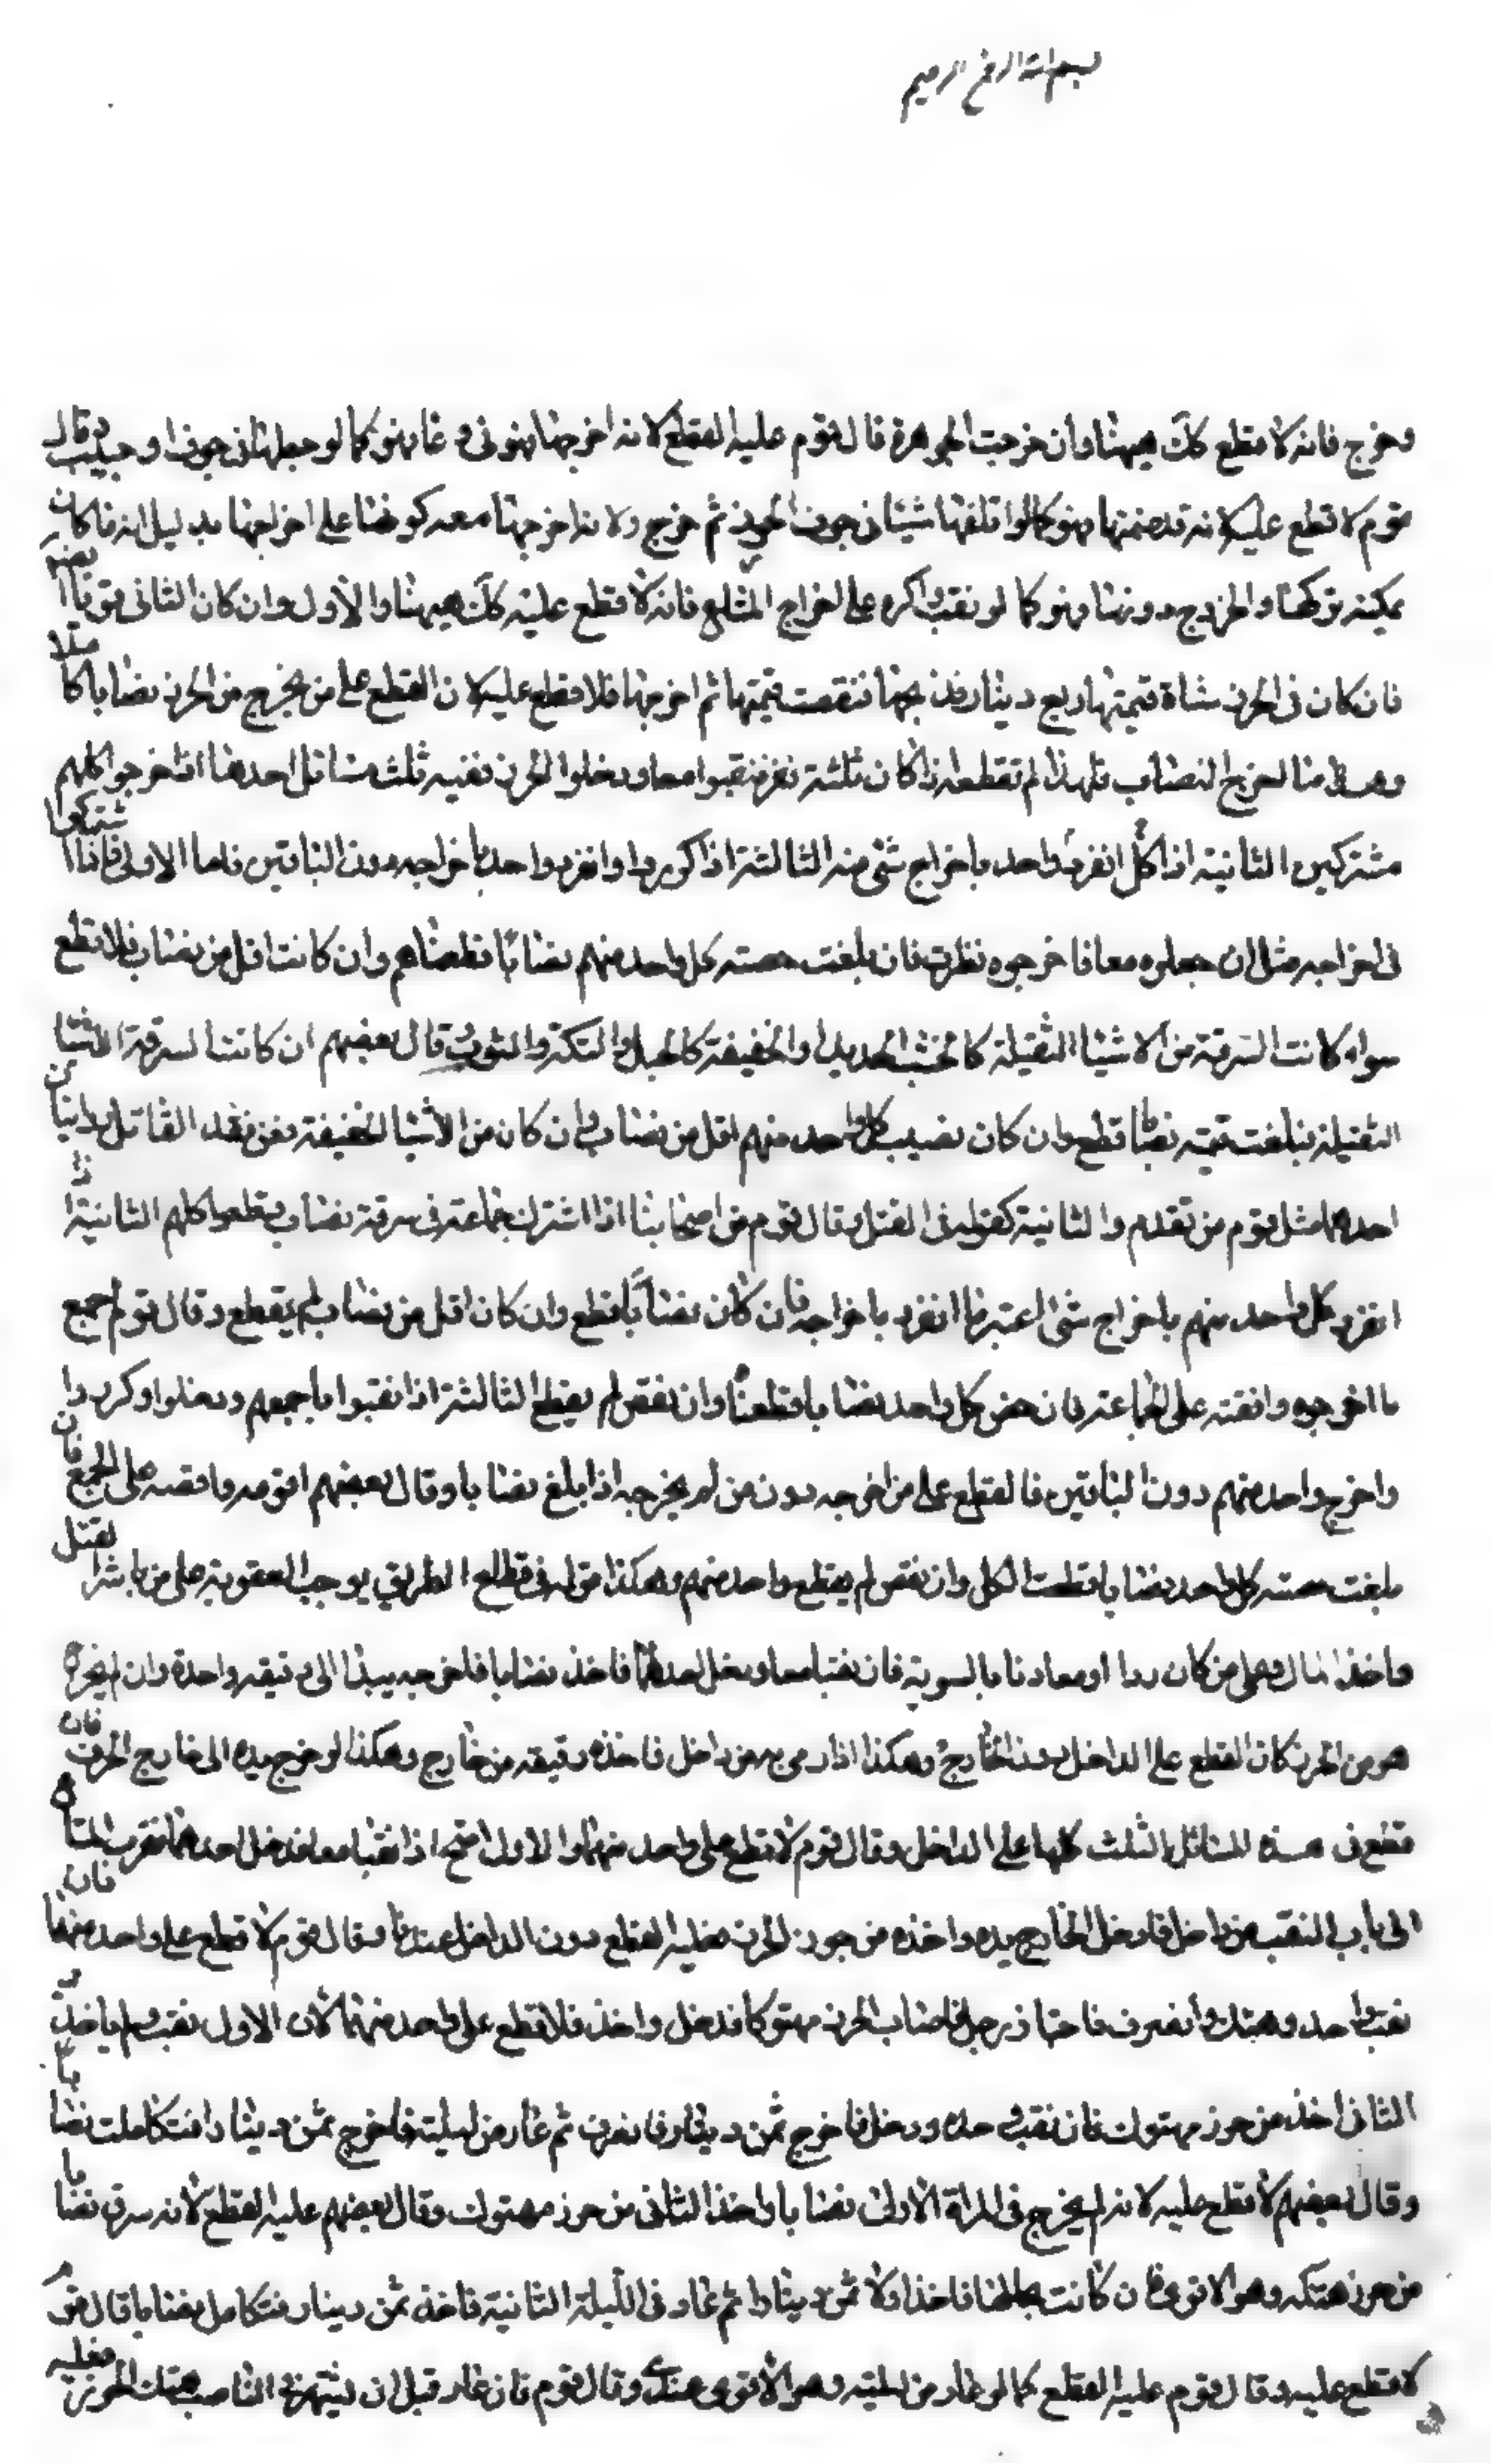 بسم الله الرحمن الرحيم
وخرج فانه لا قطع كك هيهنا وان خرجت الجوهرة قال قوم عليه القطع لانه اخرجها فهو في وعا فهو كما لو جعلها في جيب وقال
قوم لا قطع عليه لانه قد ضمنها فهو كما لو اتلف شيئا في جوف الحرز ثم خرج ولانه اخرجها معه كرها على اخراجها بدليل انه ما كان
يمكنه تركها والخروج دونها فهو كما لو نقب واكره على اخراج المتاع فانه لا قطع عليه كك هيهنا والاول وان كان الثاني قويا
فان كان في الحرز شاة قيمتها ربع دينار فذبحها فنقصت قيمتها ثم اخرجها فلا قطع عليه لان القطع على من يخرج من الحرز نصابا كاملا
وهذا ما اخرج النصاب فلهذا لم نقطعه اذا كان ثلثة نفر فنقبوا معا ودخلوا الحرز ففيه ثلث مسائل احدها اذا اخرجوا كلهم
مشتركين الثانية اذا انفرد كل واحد باخراج شئ منه الثالثة اذا كوروا وانفرد واحد باخراجه دون الباقين فاما الاولى فاذا اشتركوا
في اخراجه مثل ان حملوه معا فاخرجوه نظرت فان بلغت حصته كل واحد منهم نصابا قطعناهم وان كانت اقل من نصاب فلا قطع
سواء كانت السرقة من الاشيا الثقيلة كالخشب والحديد او الخفيفة كالحبل والتكة والثوب وقال بعضهم ان كانت السرقة من الاشيا
الثقيلة فبلغت قيمته نصابا قطع وان كان نصيب كل واحد منهم اقل من نصاب وان كان من الاشيا الخفيفة فعن هذا القائل روايتان
احدهما مثل قوم من تقدم والثانية كقوله في الثقيل وقال قوم من اصحابنا اذا اشترك جماعة في سرقة نصاب قطعوا كلهم الثانية اذا
انفرد كل واحد منهم باخراج شئ اعتبرنا ما انفرد باخراجه فان كان نصابا قطع وان كان اقل من نصاب لم يقطع وقال قوم اجمع
ما اخرجوه وافضه على الجماعة فان خص كل واحد نصابا قطعنا وان نقص لم يقطع الثالثة اذا نقبوا باجمعهم ودخلوا وكوروا
واخرج واحد منهم دون الباقين فالقطع على من اخرجه دون من لم يخرجه اذا بلغ نصابا وقال بعضهم اقومه وافضه على الجميع فان
بلغت حصته كل واحد نصابا قطعت الكل وان نقص لم يقطع واحد منهم وهكذا قوله في قطاع الطريق يوجب العقوبة على من باشر القتل
واخذ المال وعلى من كان ردا او معاونا بالسوية فان نقبا معا ودخل احدهما فاخذ نصابا فاخرجه بيده الى رفيقه واخذه وان لم يخرج
هو من الحرز كان القطع على الداخل دون الخارج وهكذا اذا رمى به من داخل فاخذه رفيقه من خارج وهكذا لو خرج يده الى خارج الحرز فان
قطع في هذه المسائل الثلث كلها على الداخل وقال قوم لا قطع على واحد منهما والاول اصح اذا نقبا معا فدخل احدهما فقرب المتاع
الى باب النقب من داخل فادخل الخارج يده واخذه من جوف الحرز فعليه القطع دون الداخل عندنا وقال قوم لا قطع على واحد منهما فان
نقب واحد وهتك وانصرف فاجتاز رجل فاصاب الحرز مهتوكا فدخل واخذ فلا قطع على واحد منهما لان الاول نقب ولم ياخذ و
الثاني اخذ من حرز مهتوك فان نقب وحده ودخل فاخرج ثمن دينار وانصرف ثم عاد من ليلته فاخرج ثمن دينار فتكاملت نصابا
وقال بعضهم لا قطع عليه لانه لم يخرج في المرة الاولى نصابا واخذ الثاني من حرز مهتوك وقال بعضهم عليه القطع لانه سرق نصابا
من حرز هتكه وهو الاقوى فان كانت بحالها فاخذ اولا ثمن دينار ثم عاد في الليلة الثانية فاخذ ثمن دينار فتكامل نصابا قال قوم
لا قطع عليه وقال قوم عليه القطع كما لو عاد من ليلته وهو الاقوى عندي وقال قوم فان عاد قبل ان يشتهر في الناس هتك الحرز فعليه